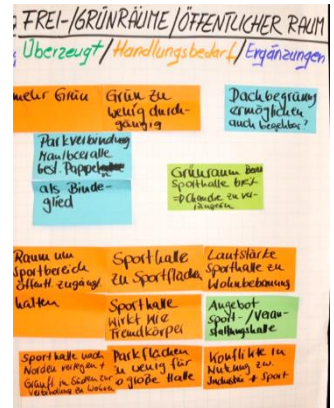 FREI-/GRÜNRÄUME/ÖFFENTLICHER RAUM
Überzeugt/Handlungsbedarf/Ergänzungen
mehr Grün
Grün zu
wenig durch-
gängig
Dachbegrünung
ermöglichen
auch begehbar?
Parkverbindung
best. Pappel
als Binde-
glied
Grünraum
Sporthalle
Chance zu ver-
Raum um
Sportbereich
öffentl. zugängl.
halten
Sporthalle
zu Sportflächen
Lautstärke
Sporthalle zu
Wohnbebauung
Sporthalle
wirkt wie
Fremdkörper
Angebot
Sport-/Veran-
staltungshalle
Sporthalle nach
Norden verlegen +
Grünfl. im Süden zur
Verbindung zu Wohnen
Parkflächen
zu wenig für
so große Halle
Konflikte in
Nutzung zw.
Industrie + Sport